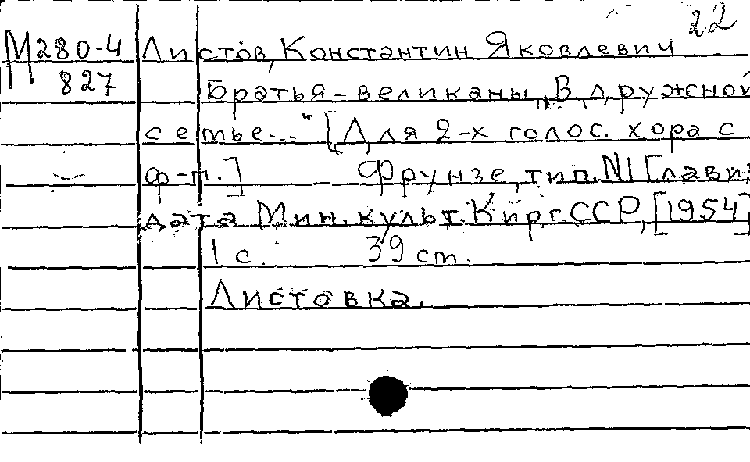 22
М280-4 Листов, Константин Яковлевич
827 Братья-великаны. „В дружной
семье..." [Для 2-х голос. хора с
ф-п.] Фрунзе, тип. №1 Главиз
дата Мин. культ. Кирг. ССР, [1954]
1 с. 39 ст.
Листовка.